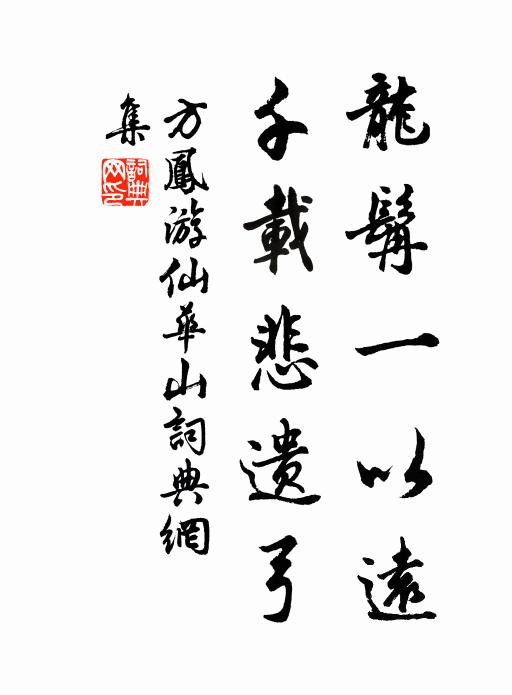 龍髯一以遠
千載悲遺弓
方鳳游仙華山詞典網
集
詞典
网印